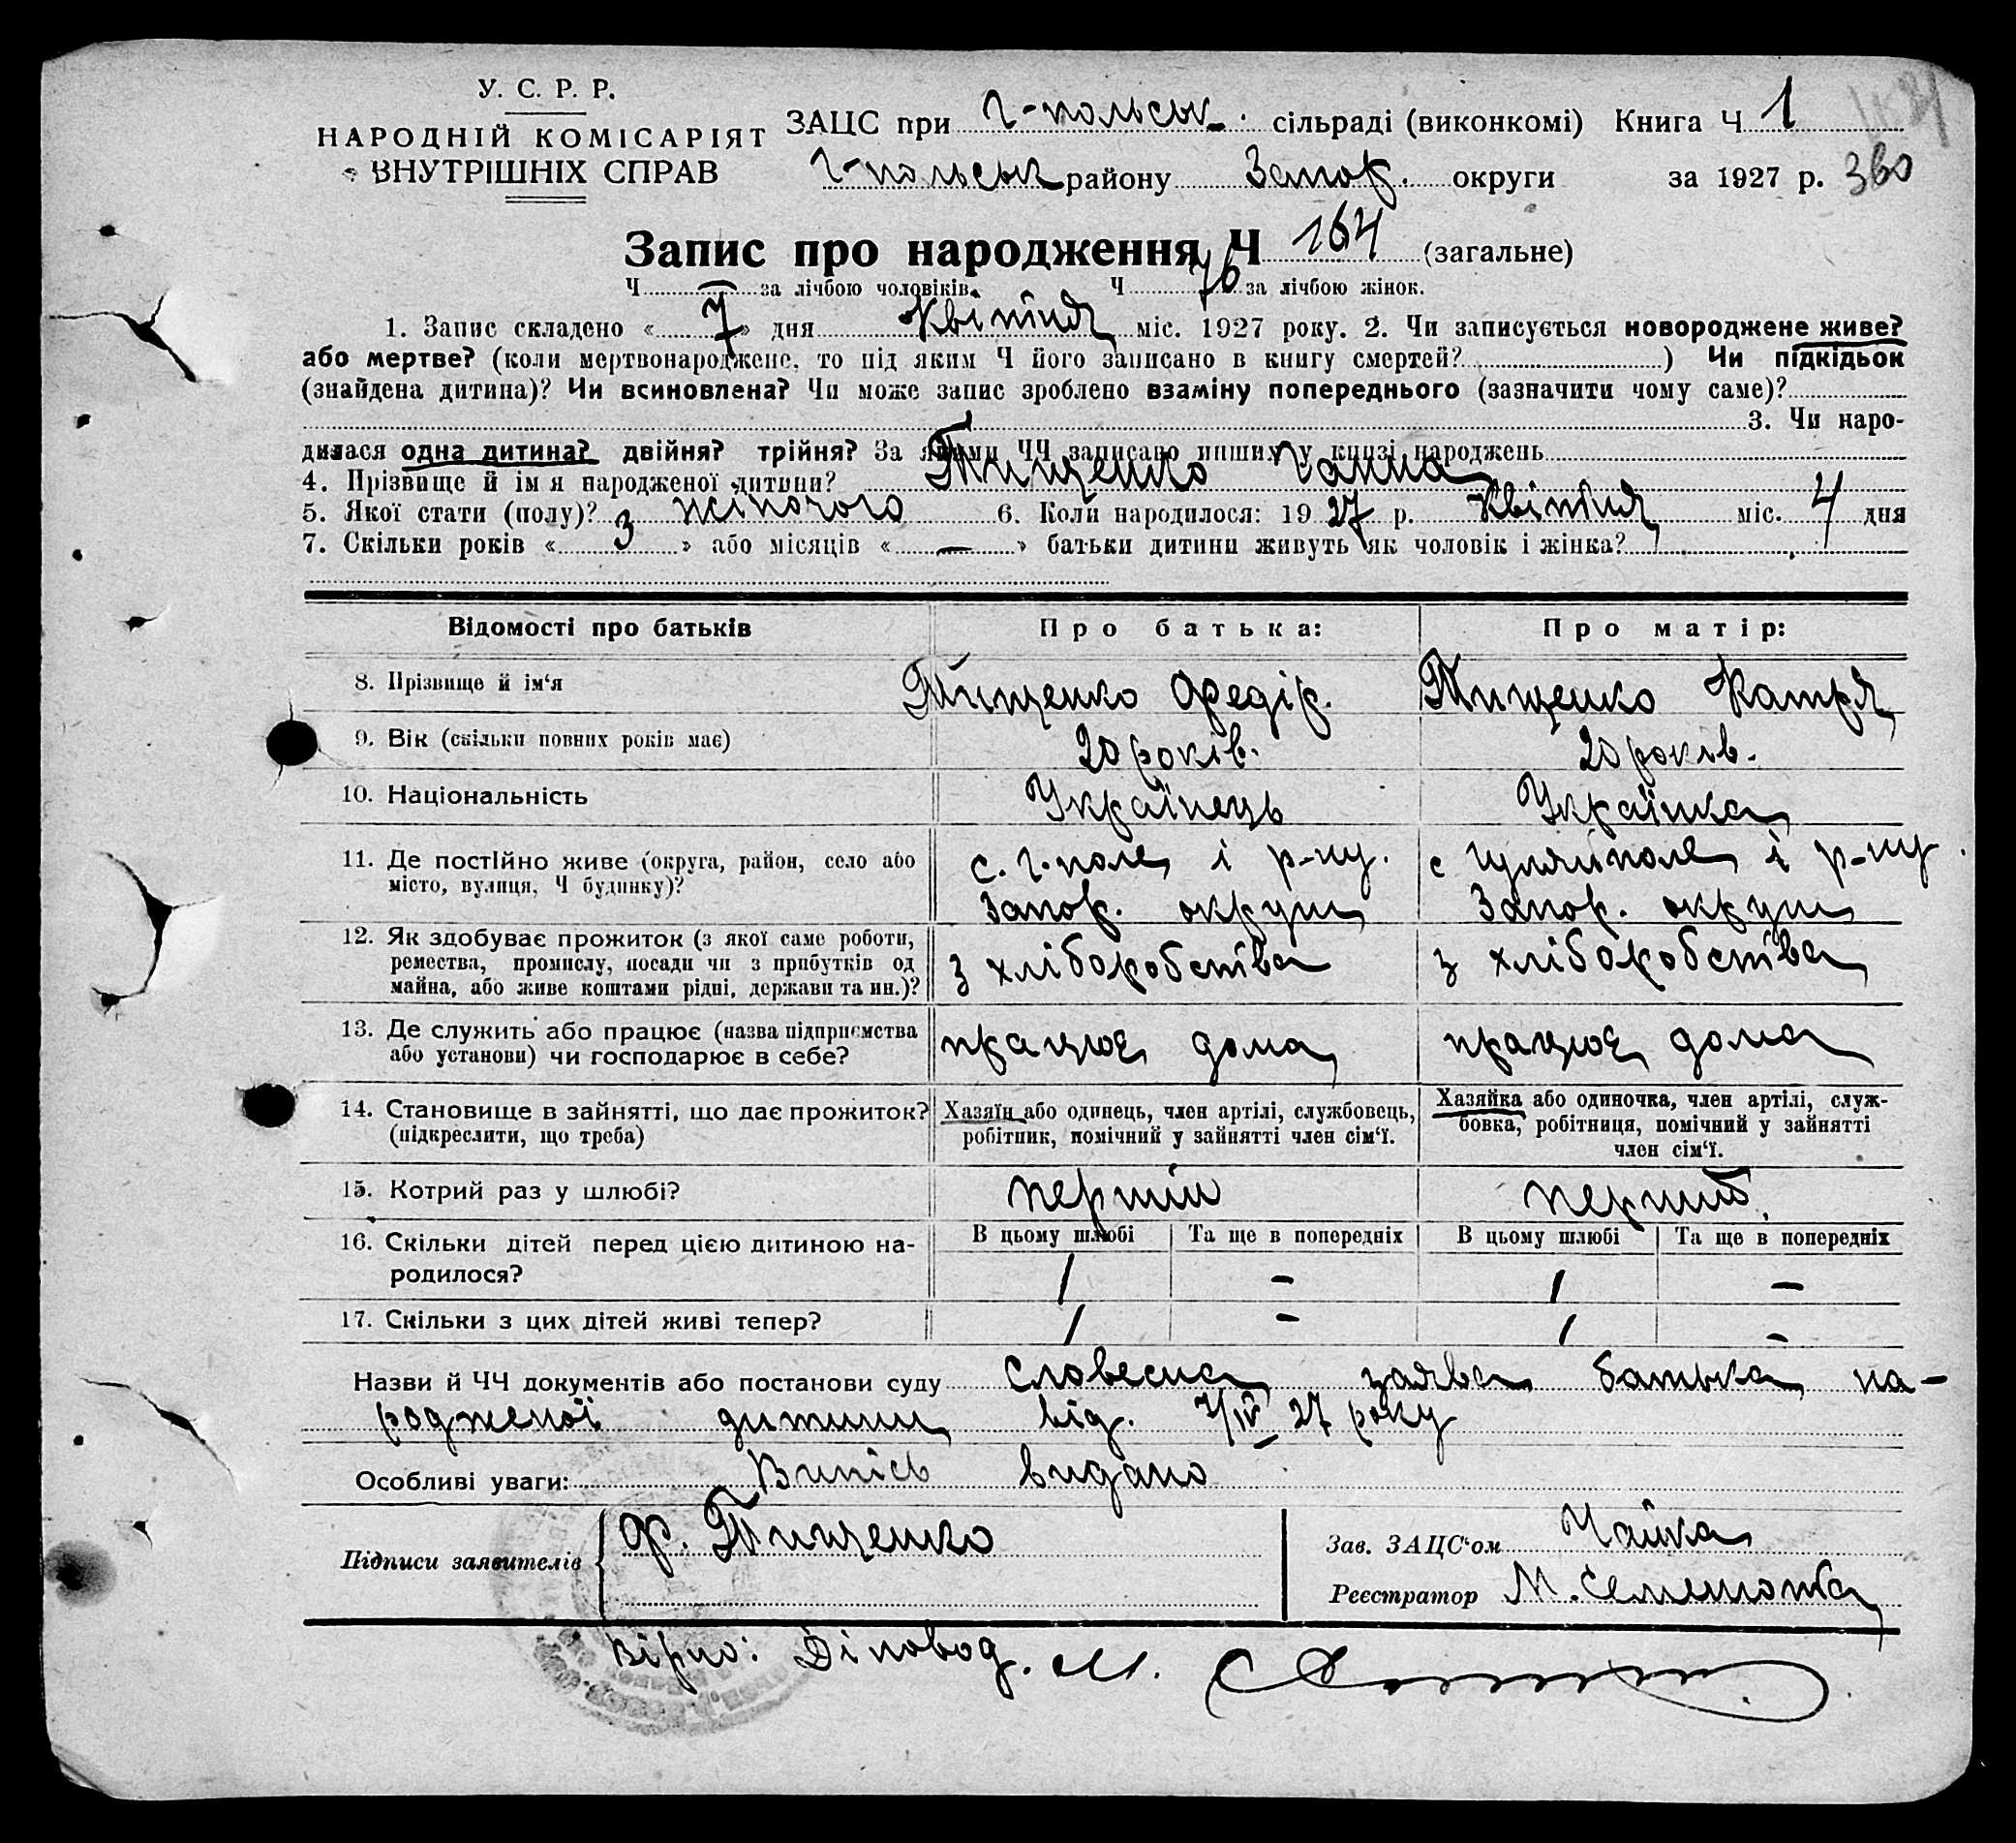 У. С. Р. Р.
НАРОДНІЙ КОМІСАРІЯТ
ВНУТРІШНІХ СПРАВ
ЗАЦС при г-польськ. сільраді (виконкомі) Книга Ч 1
г-польськ району Запор. округи за 1927 р. 360
Запис про народження Ч 164 (загальне)
Ч за лічбою чоловіків. Ч 76 за лічбою жінок.
1. Запис складено « 7 » дня Квітня міс. 1927 року. 2. Чи записується новороджене живе?
або мертве? (коли мертвонароджене, то під яким Ч його записано в книгу смертей? ) Чи підкідьок
(знайдена дитина)? Чи всиновлена? Чи може запис зроблено взаміну попереднього (зазначити чому саме)?
3. Чи наро-
дилася одна дитина? двійня? трійня? За якими ЧЧ записано инших у книзі народжень
4. Прізвище й ім я народженої дитини? Тищенко Ганна
5. Якої стати (полу)? жіночого 6. Коли народилося: 19 27 р. Квітня міс. 4 дня
7. Скільки років « 3 » або місяців « — » батьки дитини живуть як чоловік і жінка?
Відомості про батьків Про батька: Про матір:
8. Прізвище й ім‘я Тищенко Федір. Тищенко Катря
9. Вік (скільки повних років має) 20 років. 20 років.
10. Національність Українець Українка
11. Де постійно живе (округа, район, село або с. г. поле і р-ну. с Гуляйполе і р-ну.
місто, вулиця, Ч будинку)? Запор. округи Запор. округи
12. Як здобуває прожиток (з якої саме роботи,
ремества, промислу, посади чи з прибутків од з хліборобства з хліборобства
майна, або живе коштами рідні, держави та ин.)?
13. Де служить або працює (назва підприємства працює дома працює дома
або установи) чи господарює в себе?
14. Становище в зайнятті, що дає прожиток? Хазяїн або одинець, член артілі, службовець, Хазяйка або одиночка, член артілі, служ-
(підкреслити, що треба) робітник, помічний у зайнятті член сім‘ї. бовка, робітниця, помічний у зайнятті
член сім‘ї.
15. Котрий раз у шлюбі? перший перший
16. Скільки дітей перед цією дитиною на- В цьому шлюбі Та ще в попередніх В цьому шлюбі Та ще в попередніх
родилося? 1 - 1 -
17. Скільки з цих дітей живі тепер? 1 - 1 -
Назви й ЧЧ документів або постанови суду Словесна заява батька на-
родженої дитини від. 7/IV 27 року
Особливі уваги: Випісь видано
Підписи заявителів Ф. Тищенко Зав. ЗАЦС‘ом Чайка
Реєстратор М.
Вірно: Діловод. М.